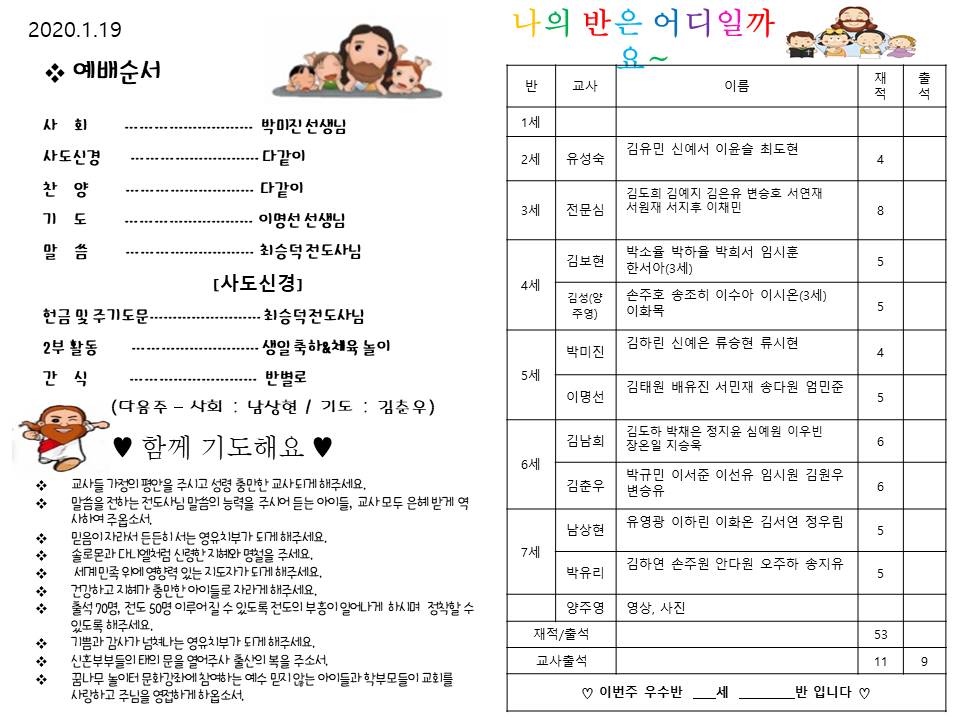 2020.1.19
❖ 예배순서
사 회 --------------------------- 박미진 선생님
사도신경 --------------------------- 다같이
찬 양 --------------------------- 다같이
기 도 --------------------------- 이명선 선생님
말 씀 --------------------------- 최승덕 전도사님
[사도신경]
헌금 및 주기도문------------------------ 최승덕 전도사님
2부 활동 --------------------------- 생일 축하&체육 놀이
간 식 --------------------------- 반별로
(다음주 – 사회 : 남상현 / 기도 : 김춘우)
♥ 함께 기도해요 ♥
❖ 교사들 가정의 평안을 주시고 성령 충만한 교사 되게 해주세요.
❖ 말씀을 전하는 전도사님 말씀의 능력을 주시어 듣는 아이들, 교사 모두 은혜 받게 역
사하여 주옵소서.
❖ 믿음이 자라서 든든히 서는 영유치부가 되게 해주세요.
❖ 솔로몬과 다니엘처럼 신령한 지혜와 명철을 주세요.
❖ 세계 민족 위에 영향력 있는 지도자가 되게 해주세요.
❖ 건강하고 지혜가 충만한 아이들로 자라게 해주세요.
❖ 출석 70명, 전도 50명 이루어 질 수 있도록 전도의 부흥이 일어나게 하시며 정착할 수
있도록 해주세요.
❖ 기쁨과 감사가 넘쳐나는 영유치부가 되게 해주세요.
❖ 신혼부부들의 태의 문을 열어주사 출산의 복을 주소서.
❖ 꿈나무 놀이터 문화강좌에 참여하는 예수 믿지 않는 아이들과 학부모들이 교회를
사랑하고 주님을 영접하게 하옵소서.
나의 반은 어디일까
요~
반 교사 이름 재적 출석
1세
2세 유성숙 김유민 신예서 이윤슬 최도현 4
3세 전문심 김도희 김예지 김은유 변승호 서연재
서원재 서지후 이채민 8
4세 김보현 박소율 박하율 박희서 임시훈
한서아(3세) 5
김성(양주영) 손주호 송조히 이수아 이시온(3세)
이화목 5
5세 박미진 김하린 신예은 류승현 류시현 4
이명선 김태원 배유진 서민재 송다원 엄민준 5
6세 김남희 김도하 박채은 정지윤 심예원 이우빈
장온일 지승욱 6
김춘우 박규민 이서준 이선유 임시원 김원우
변승유 6
7세 남상현 유영광 이하린 이화온 김서연 정우림 5
박유리 김하연 손주원 안다원 오주하 송지유 5
양주영 영상, 사진
재적/출석 53
교사출석 11 9
♡ 이번주 우수반 ___세 ________반 입니다 ♡